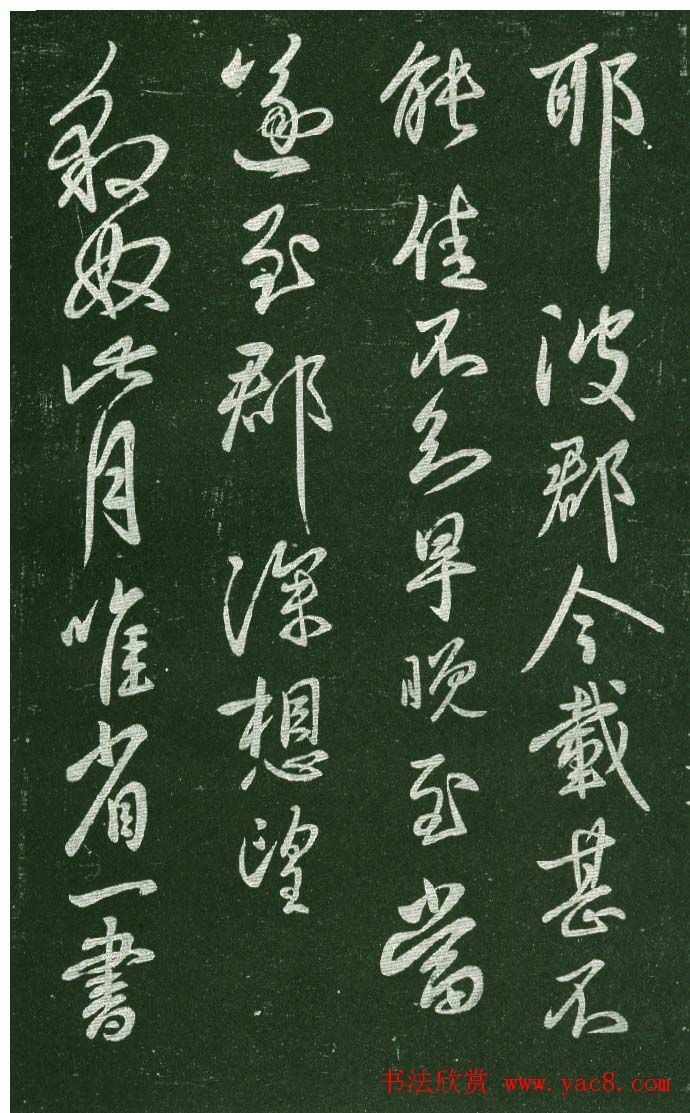 耶彼郡今載甚不
能佳不知早晚至當
遂至郡深想望
叙奴此月唯省一書
书法欣赏 www.yac8.com